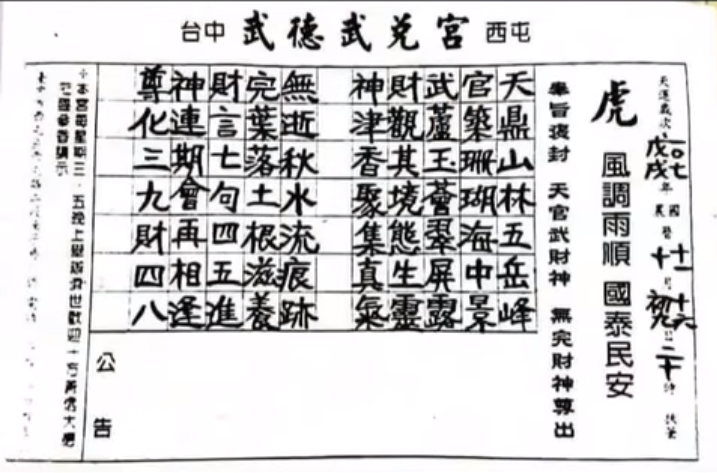 台中 武德武兌宮 西屯
天運歲次
戊戌年
虎
風調雨順 國泰民安
奉旨褒封 天官武財神 無完財神尊出
天鼎山林五岳峰
官築珊瑚海中景
武蘆玉薈翠屏露
財觀其境態生靈
神津香聚集真氣
無逝秋水流痕跡
完葉落土根滋養
財言七句四五進
神連期會再相逢
尊化三九財四八
公告
※本宮每星期三、五晚上聖駕濟世歡迎十方善信大德
蒞臨參香請示